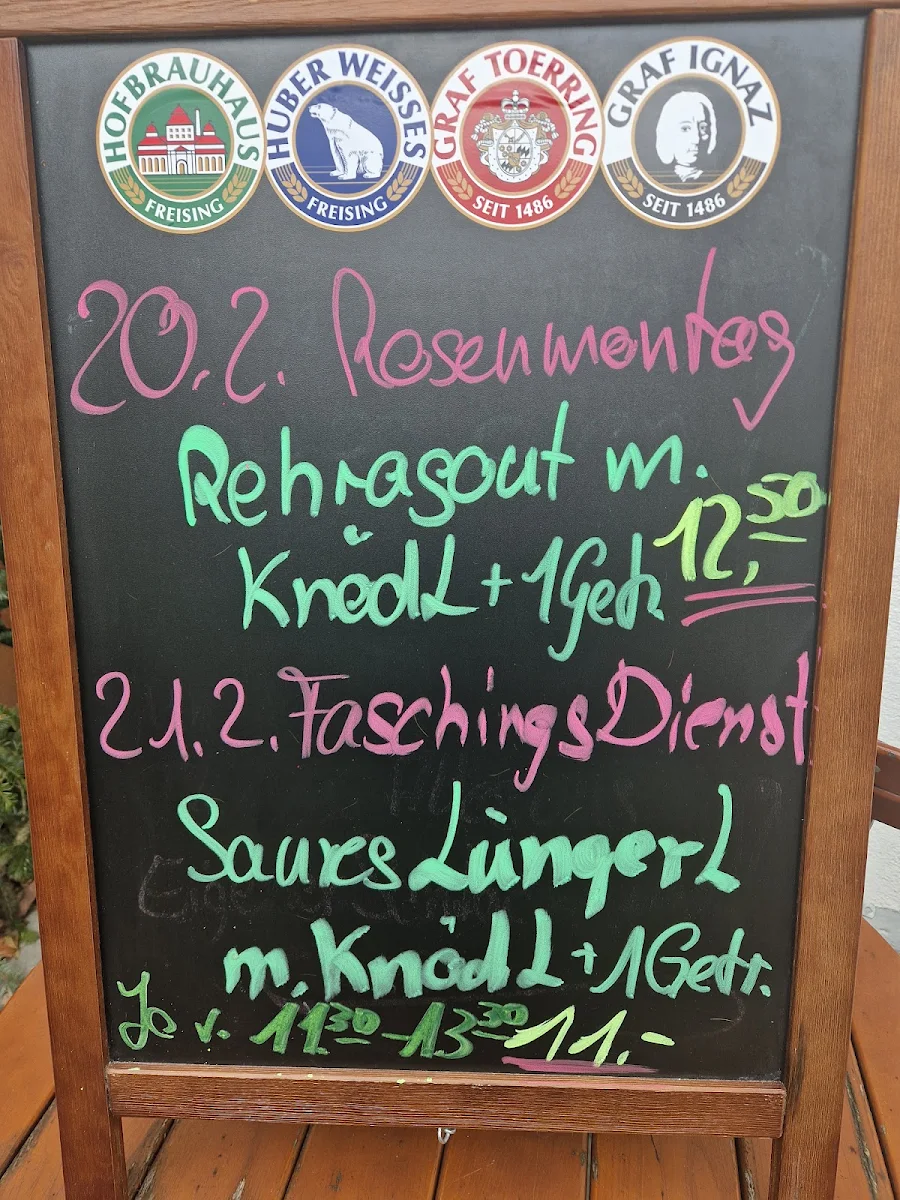 HOFBRAUHAUS
FREISING
HUBER WEISSES
FREISING
GRAF TOERRING
SEIT 1486
GRAF IGNAZ
SEIT 1486
20.2. Rosenmontag
Rehragout m.
Knödl + 1 Getr. 12,50
21.2. FaschingsDienst
Saures Lüngerl
m. Knödl + 1 Getr.
Je v. 11 30 - 13 30 11.-